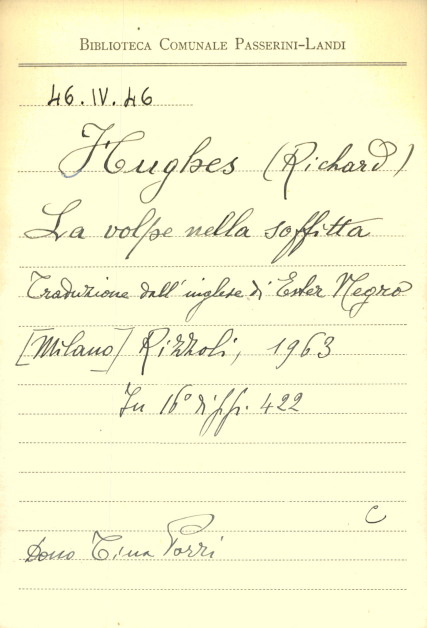 BIBLIOTECA COMUNALE PASSERINI-LANDI
46.IV.46
Hughes (Richard)
La volpe nella soffitta
Traduzione dall'inglese di Ester Negro
[Milano] Rizzoli, 1963
In 16° di pp. 422
C
Dono Tina Porri